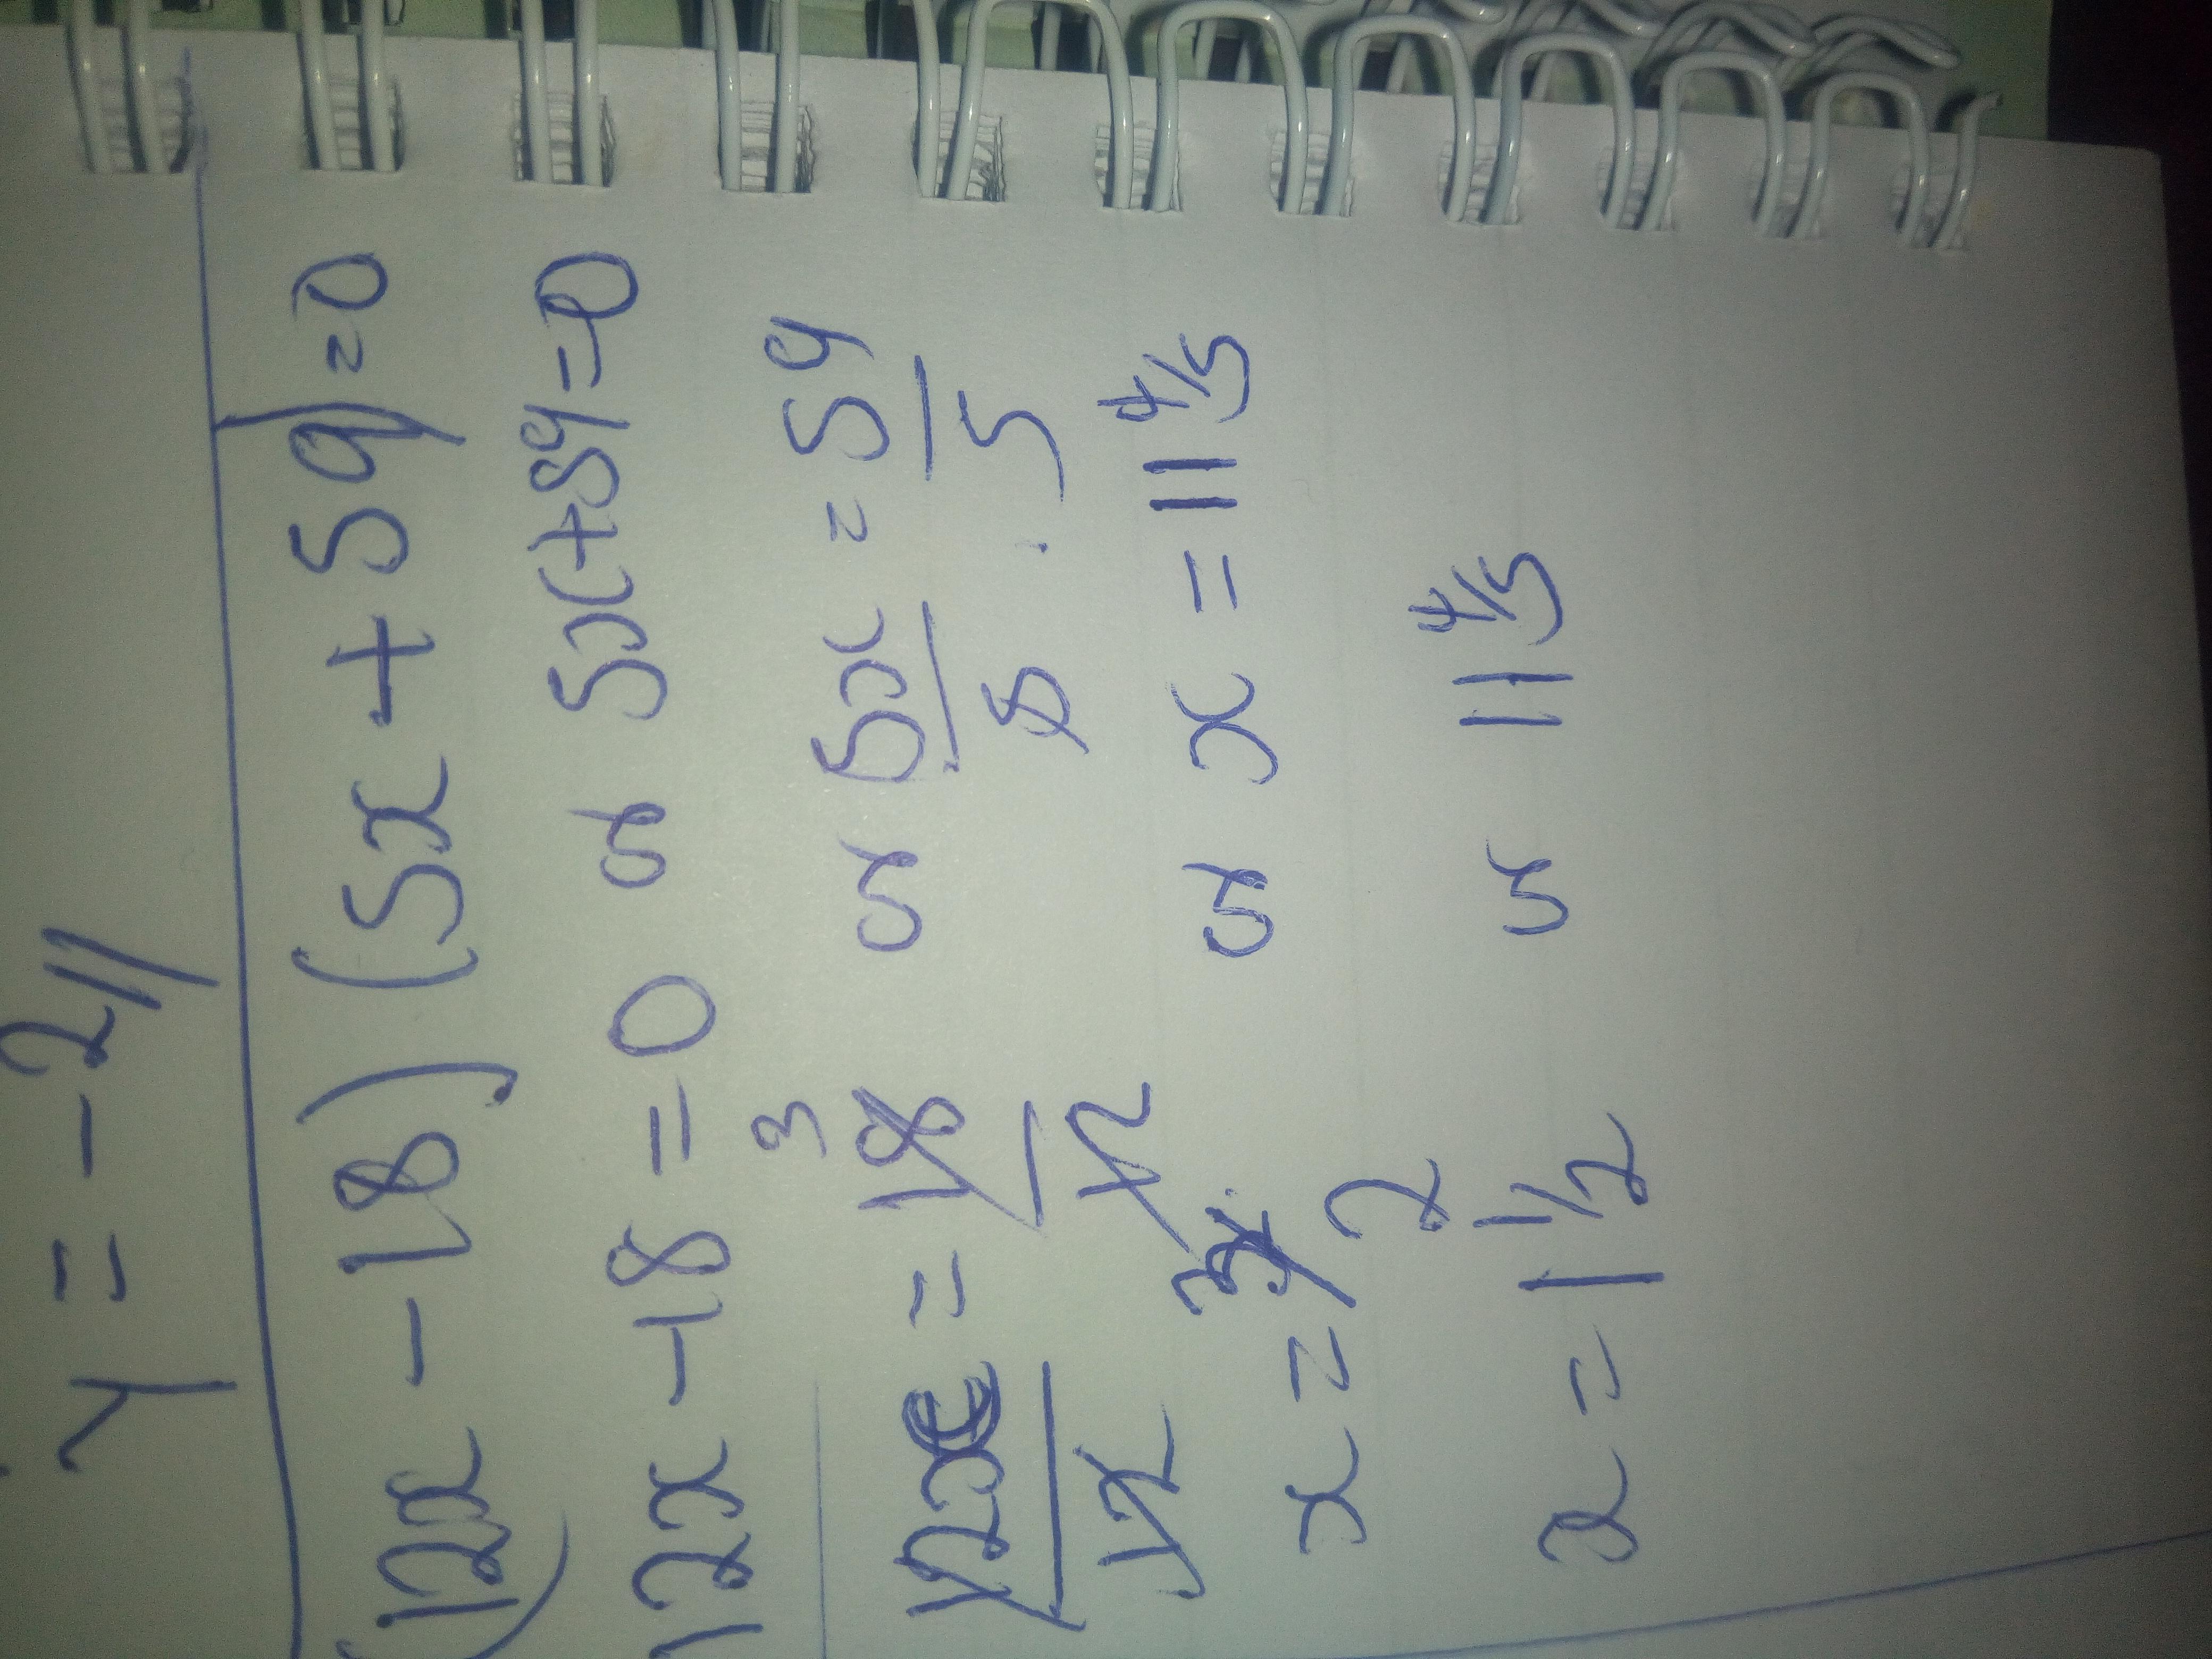 y = -2//
(12x - 18) (5x + 59) = 0
12x - 18 = 0 or 5x + 59 = 0
3
12x = 18 or 5x = 59
12 12 5 5
x = 3/2 or x = 11 4/5
x = 1 1/2 or 11 4/5